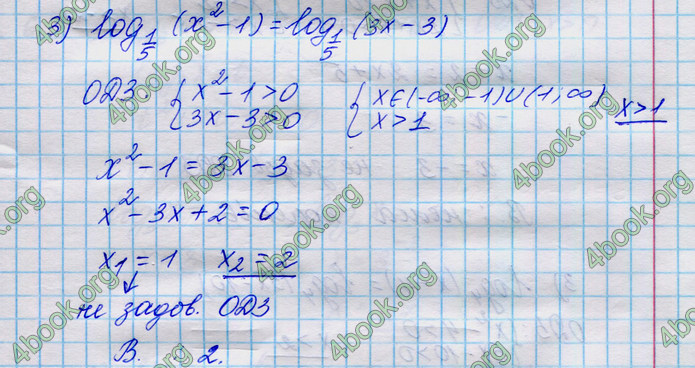 3) log_{1/5} (x² - 1) = log_{1/5} (3x - 3)
ОДЗ. { x² - 1 > 0 { x ∈ (-∞, -1) ∪ (1; ∞)
{ 3x - 3 > 0 { x > 1 x > 1
x² - 1 = 3x - 3
x² - 3x + 2 = 0
x₁ = 1 x₂ = 2
↓
не задов. ОДЗ
В. 2.
4book.org